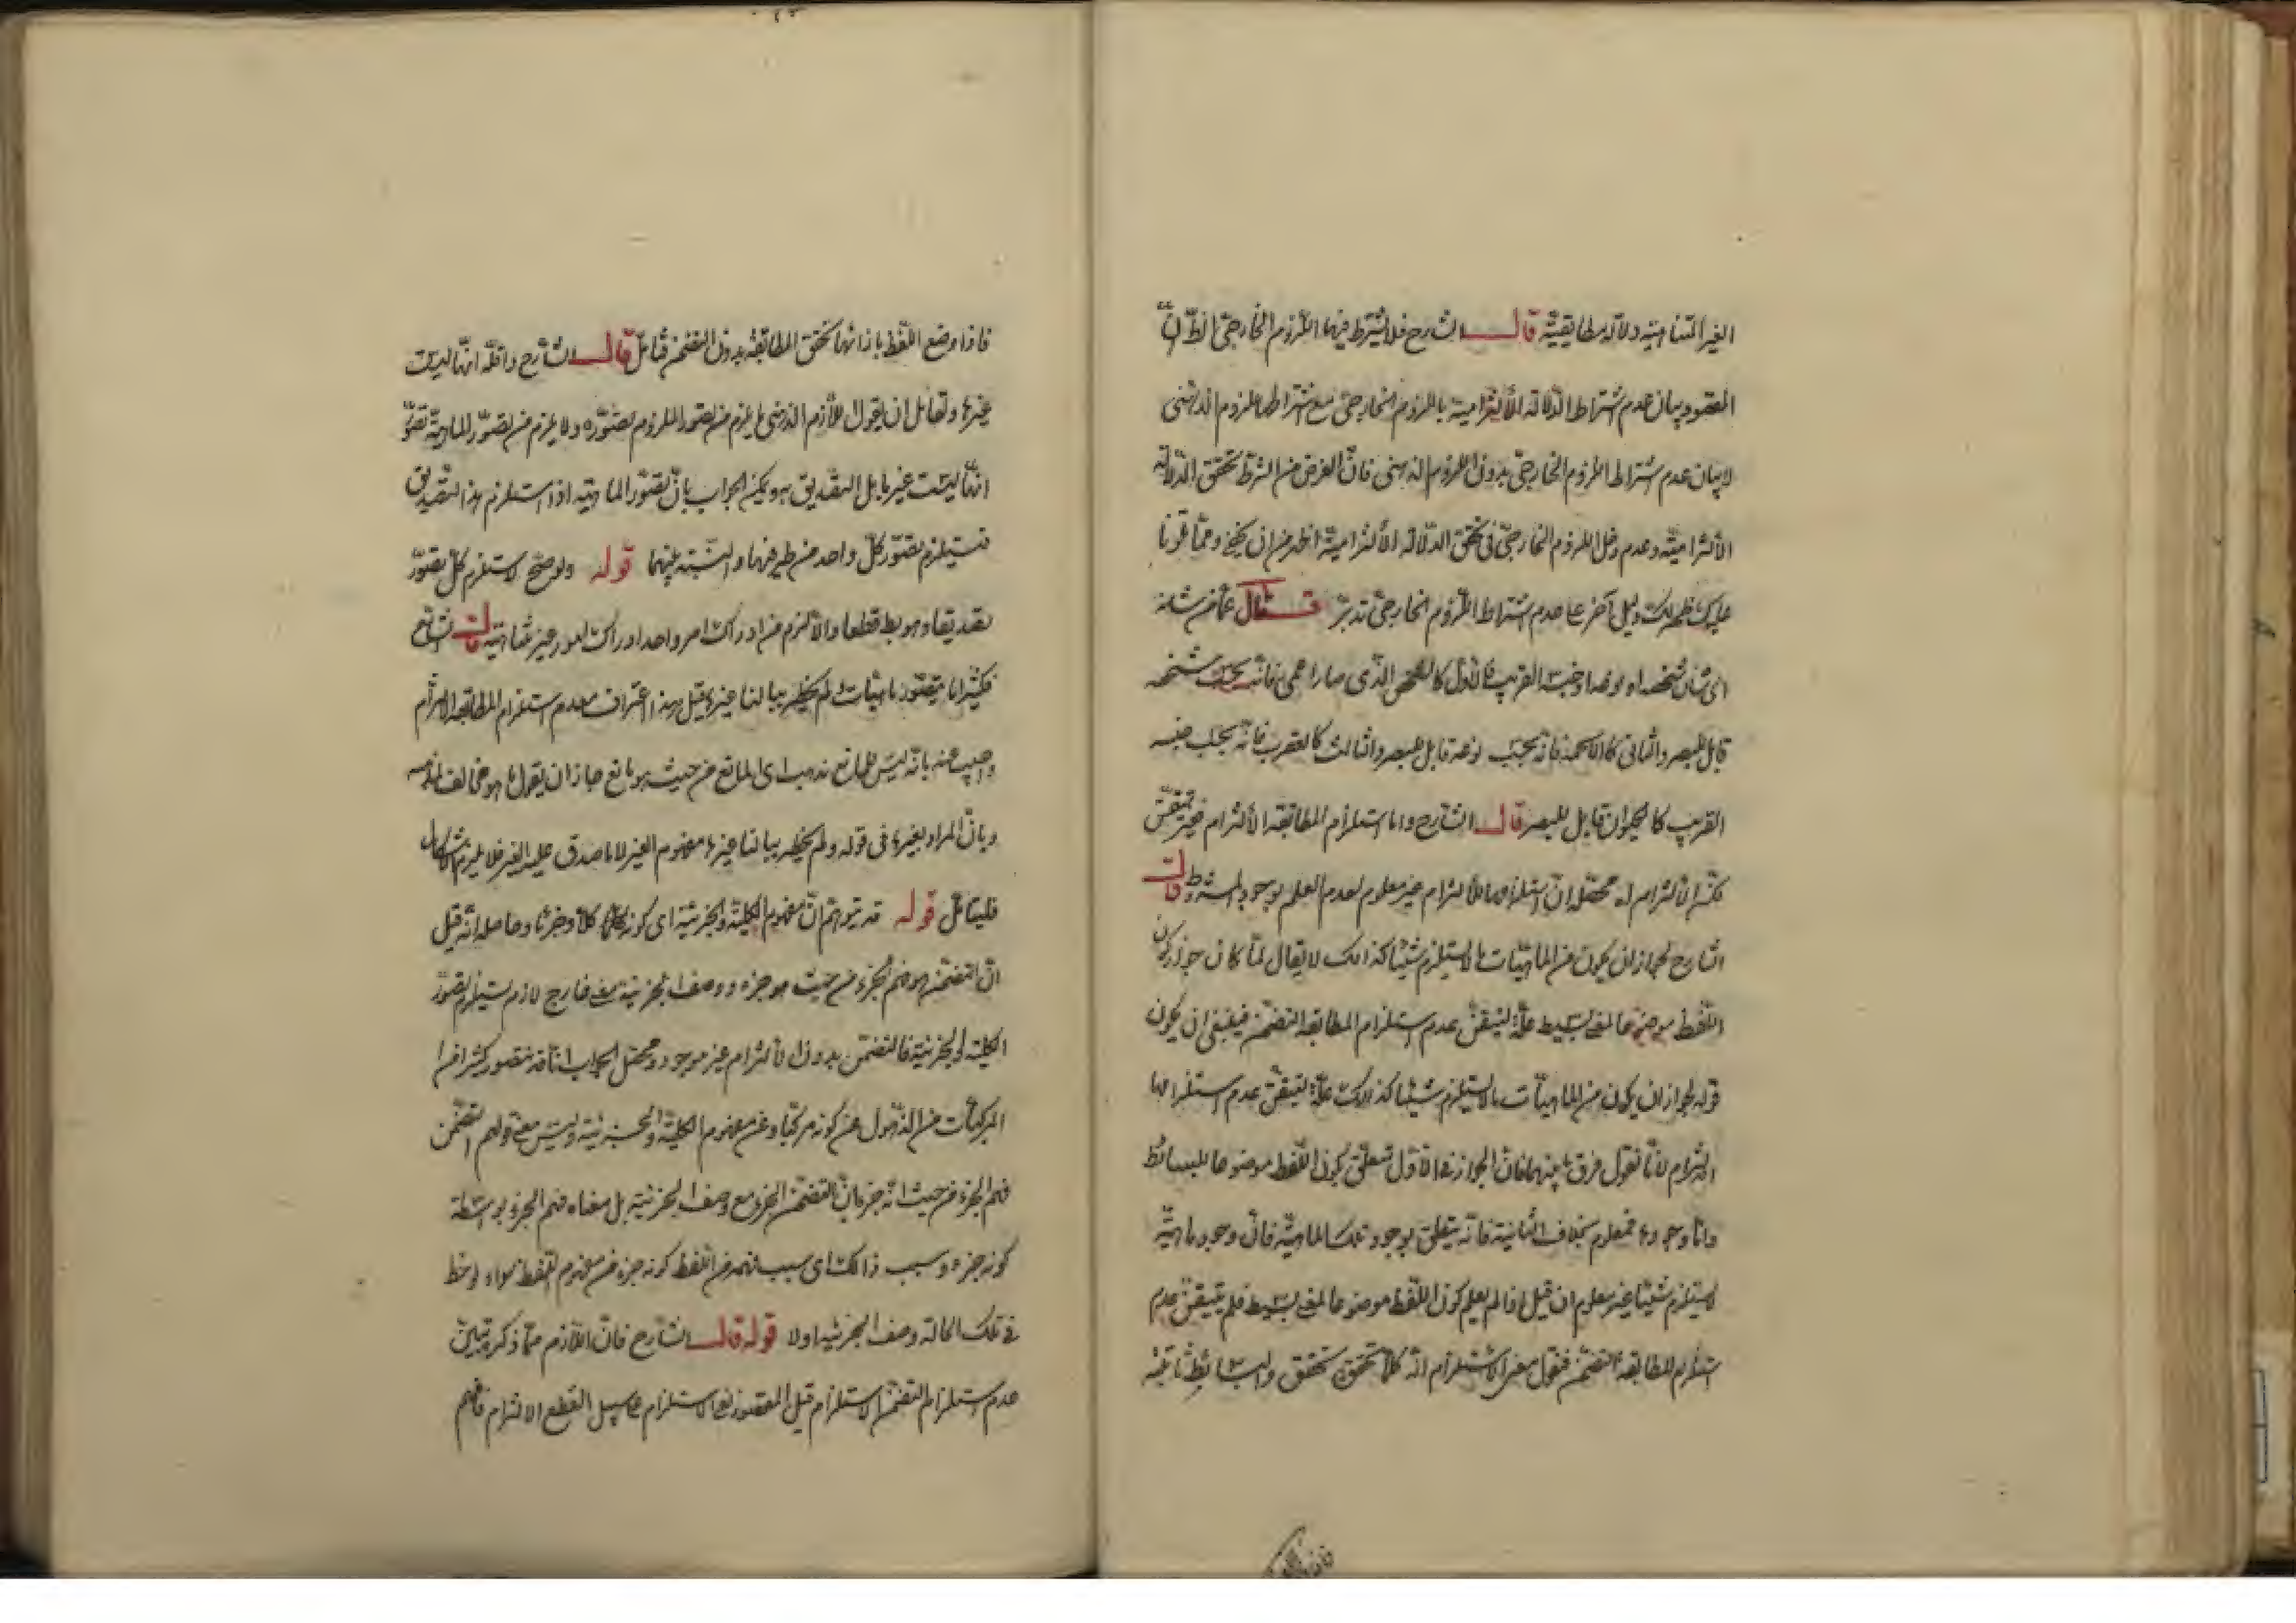 الغير المتناهية دلالة مطابقية قال الشارح فلا يشترط فيها اللزوم الخارجي الظ انّ
المقصود بيان عدم اشتراط الدلالة الالتزامية باللزوم الخارجي مع اشتراطها بلزوم الذهني
لا بيان عدم اشتراط اللزوم الخارجي بدون اللزوم الذهني فانّ الغرض من الشرط تحقق الدلالة
الالتزامية وعدم دخل اللزوم الخارجي في تحقق الدلالة الالتزامية اظهر من ان يخفى وممّا تلونا
عليك ظهر لك دليل آخر على عدم اشتراط اللزوم الخارجي تدبّر قال عمّا من شانه
اى شان شخصه او نوعه او جنسه القريب فالاول كالشخص الذى صار اعمى فانّه بحسب شخصه
قابل للبصر والثانى كالاكمه فانّه بحسب نوعه قابل للبصر والثالث كالعقرب فانّه بحسب جنسه
القريب كالحيوان قابل للبصر قال الشارح وامّا استلزام المطابقة الالتزام فغير متيقّن
الالتزام اه محصّله ان استلزامها للالتزام غير معلوم لعدم العلم بوجود المشروط قال
الشارح لجواز ان يكون من الماهيّات ما لا يستلزم شيئا كذلك لا يقال لمّا كان جواز كون
اللفظ موضوعا لمعنى بسيط علّة لتيقّن عدم استلزام المطابقة التضمّن فينبغى ان يكون
قوله لجواز ان يكون من الماهيّات ما لا يستلزم شيئا كذلك علّة لتيقّن عدم استلزامها
الالتزام لانّا نقول فرق ما بينهما فانّ الجواز فى الاول متعلق بكون اللفظ موضوعا للبسائط
وامّا وجودها فمعلوم بخلاف الثانية فانّه يتعلق بوجود تلك الماهيّة فانّ وجود ماهيّة
لا يستلزم شيئا غير معلوم ان قيل اذا لم يعلم كون اللفظ موضوعا لمعنى بسيط فلم يتيقن عدم
استلزام المطابقة التضمّن فنقول معنى الاستلزام انّه كلّما تحقق تحقق والبسائط ثابتة
فاذا وضع اللفظ بازائها تحقق المطابقة بدون التضمّن فتامّل قال الشارح واقلّه انّها ليست
غيرها ولقائل ان يقول اللازم الذهنى ما يلزم من تصور الملزوم تصوّره ولا يلزم من تصوّر الماهيّة تصوّر
انّها ليست غيرها بل التصديق به ويمكن الجواب بانّ تصوّر الماهيّة اذا استلزم هذا التصديق
فيستلزم تصوّر كلّ واحد من طرفيها والنسبة بينهما قوله ولو صحّ لاستلزم كلّ تصوّر
تصديقا وهو بط قطعا والا لزم من ادراك امر واحد ادراك امور غير متناهية قال الشارح
فكثيرا ما نتصوّر ماهيّات ولم يخطر ببالنا غيرها قيل هذا اعتراف بعدم استلزام المطابقة الالتزام
واجيب عنه بانّه ليس للمانع مذهب اى المانع من حيث هو مانع جاز ان يقول ما هو مخالف لمذهبه
وبانّ المراد بغيرها فى قوله ولم يخطر ببالنا غيرها مفهوم الغير لا ما صدق عليه الغير فلا يلزم الاشكال
فليتامّل قوله قد يتوهّم انّ مفهوم الكلية والجزئية اى كونه كلاّ وجزءا وحاصله انّه قيل
انّ التضمّن هو فهم الجزء من حيث هو جزءه ووصف الجزئية معنى خارج لازم يستلزم تصوّر
الكلية والجزئية فالتضمّن بدون الالتزام غير موجود ومحصّل الجواب انّا قد نتصور كثيرا من
المركبّات مع الذهول عن كونه مركبّا وعن مفهوم الكليّة والجزئية وليس معنى قولهم التضمّن
فهم الجزء من حيث انّه جزء فانّ التضمّن الجزء مع وصف الجزئية بل معناه فهم الجزء بواسطة
كونه جزءه وسبب ذالك اى سبب فهمه من اللفظ كونه جزء من مفهوم اللفظ سواء لوحظ
فى تلك الحالة وصف الجزئية او لا قوله قال الشارح فانّ اللازم ممّا ذكر تبيّن
عدم استلزام التضمّن الاستلزام قيل المقصود نفى الاستلزام على سبيل القطع الالتزام فافهم